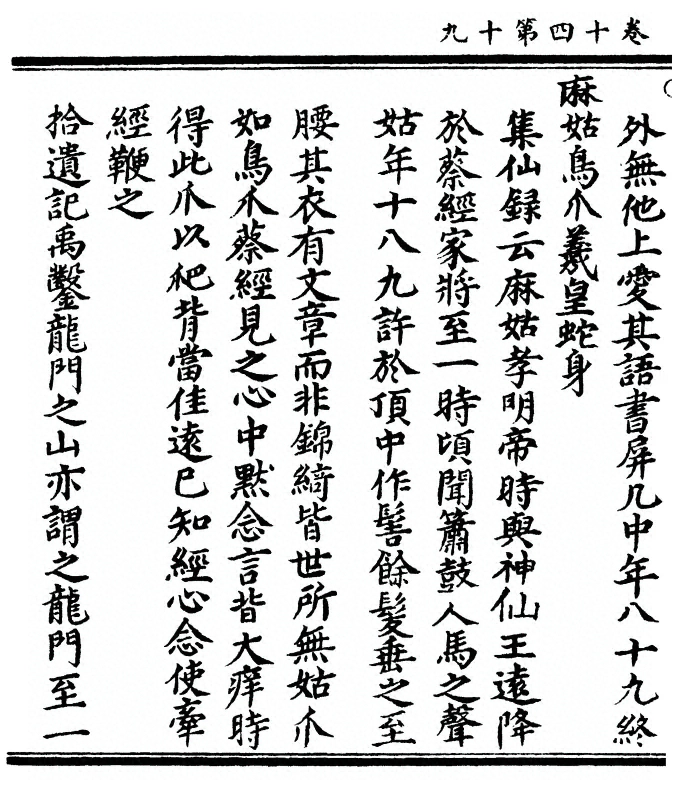 卷十四第十九
外無他上愛其語書屏几中年八十九終
麻姑鳥爪羲皇蛇身
集仙録云麻姑孝明帝時與神仙王遠降
於蔡經家將至一時頃聞簫鼓人馬之聲
姑年十八九許於頂中作髻餘髮垂之至
腰其衣有文章而非錦綺皆世所無姑爪
如鳥爪蔡經見之心中默念言背大痒時
得此爪以爬背當佳遠已知經心念使牽
經鞭之
拾遺記禹鑿龍門之山亦謂之龍門至一